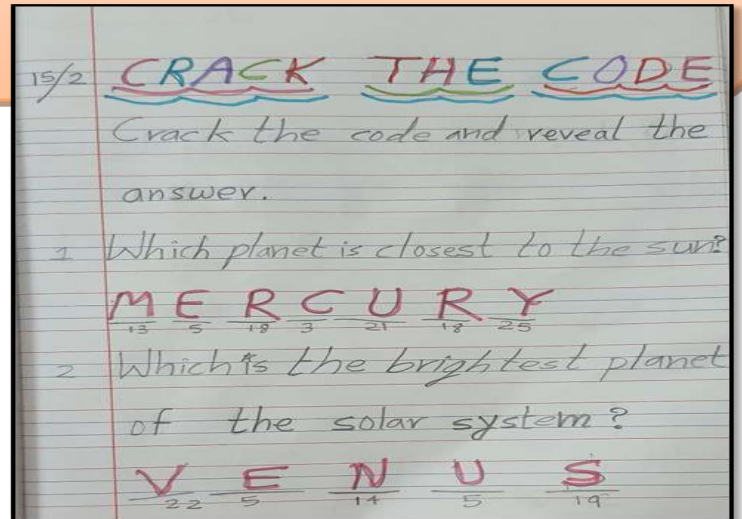 15/2 CRACK THE CODE
Crack the code and reveal the
answer.
1 Which planet is closest to the sun?
MERCURY
13 5 18 3 21 18 25
2 Which is the brightest planet
of the solar system?
VENUS
22 5 14 5 19